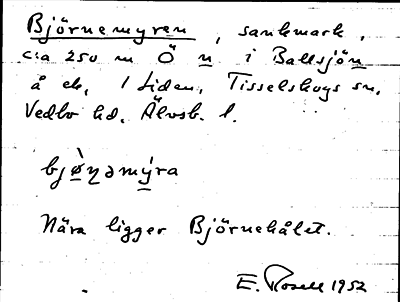 Björnemyren, sankmark,
c:a 250 m Ö n i Ballsjön
å ek, 1 Liden, Tisselskogs sn,
Vedbo hd, Älvsb. l.
bjø̀ɳəmýra
Nära ligger Björnehålet.
E. Rosell 1952